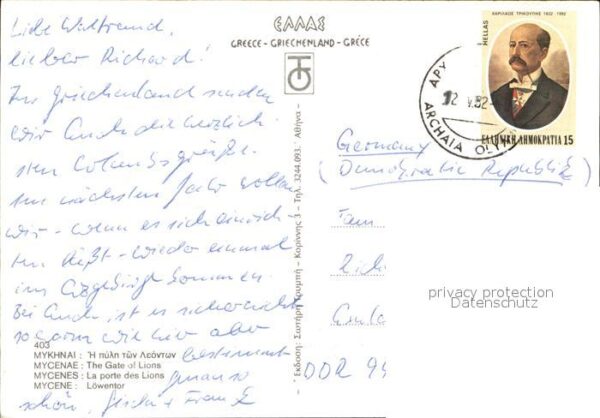 Liebe Waltraud,
lieber Richard!
Aus Griechenland senden
wir Euch die herzlich-
sten Urlaubsgrüße.
Im nächsten Jahr wollen
wir - wenn es sich einrich-
ten läßt - wieder einmal
ins Erzgebirge kommen.
Bei Euch ist es sicher nicht
so warm wie hier aber
bestimmt
genau so
schön,
403
ΜΥΚΗΝΑΙ : Ἡ πύλη τῶν Λεόντων
MYCENAE : The Gate of Lions
MYCENES : La porte des Lions
MYCENE : Löwentor
ΕΛΛΑΣ
GREECE - GRIECHENLAND - GRÈCE
Ἔκδοση: Σωτήρη Τουμπῆ - Καρίννης 3 - Τηλ. 3244.093. Ἀθήνα -
ΧΑΡΙΛΑΟΣ ΤΡΙΚΟΥΠΗΣ 1832 - 1896
HELLAS
ΕΛΛΗΝΙΚΗ ΔΗΜΟΚΡΑΤΙΑ 15
ΑΡΧ
12 V.82
ARCHAIA OLY
Germany
(Demokratie Republik)
Fam
DDR 94
privacy protection
Datenschutz